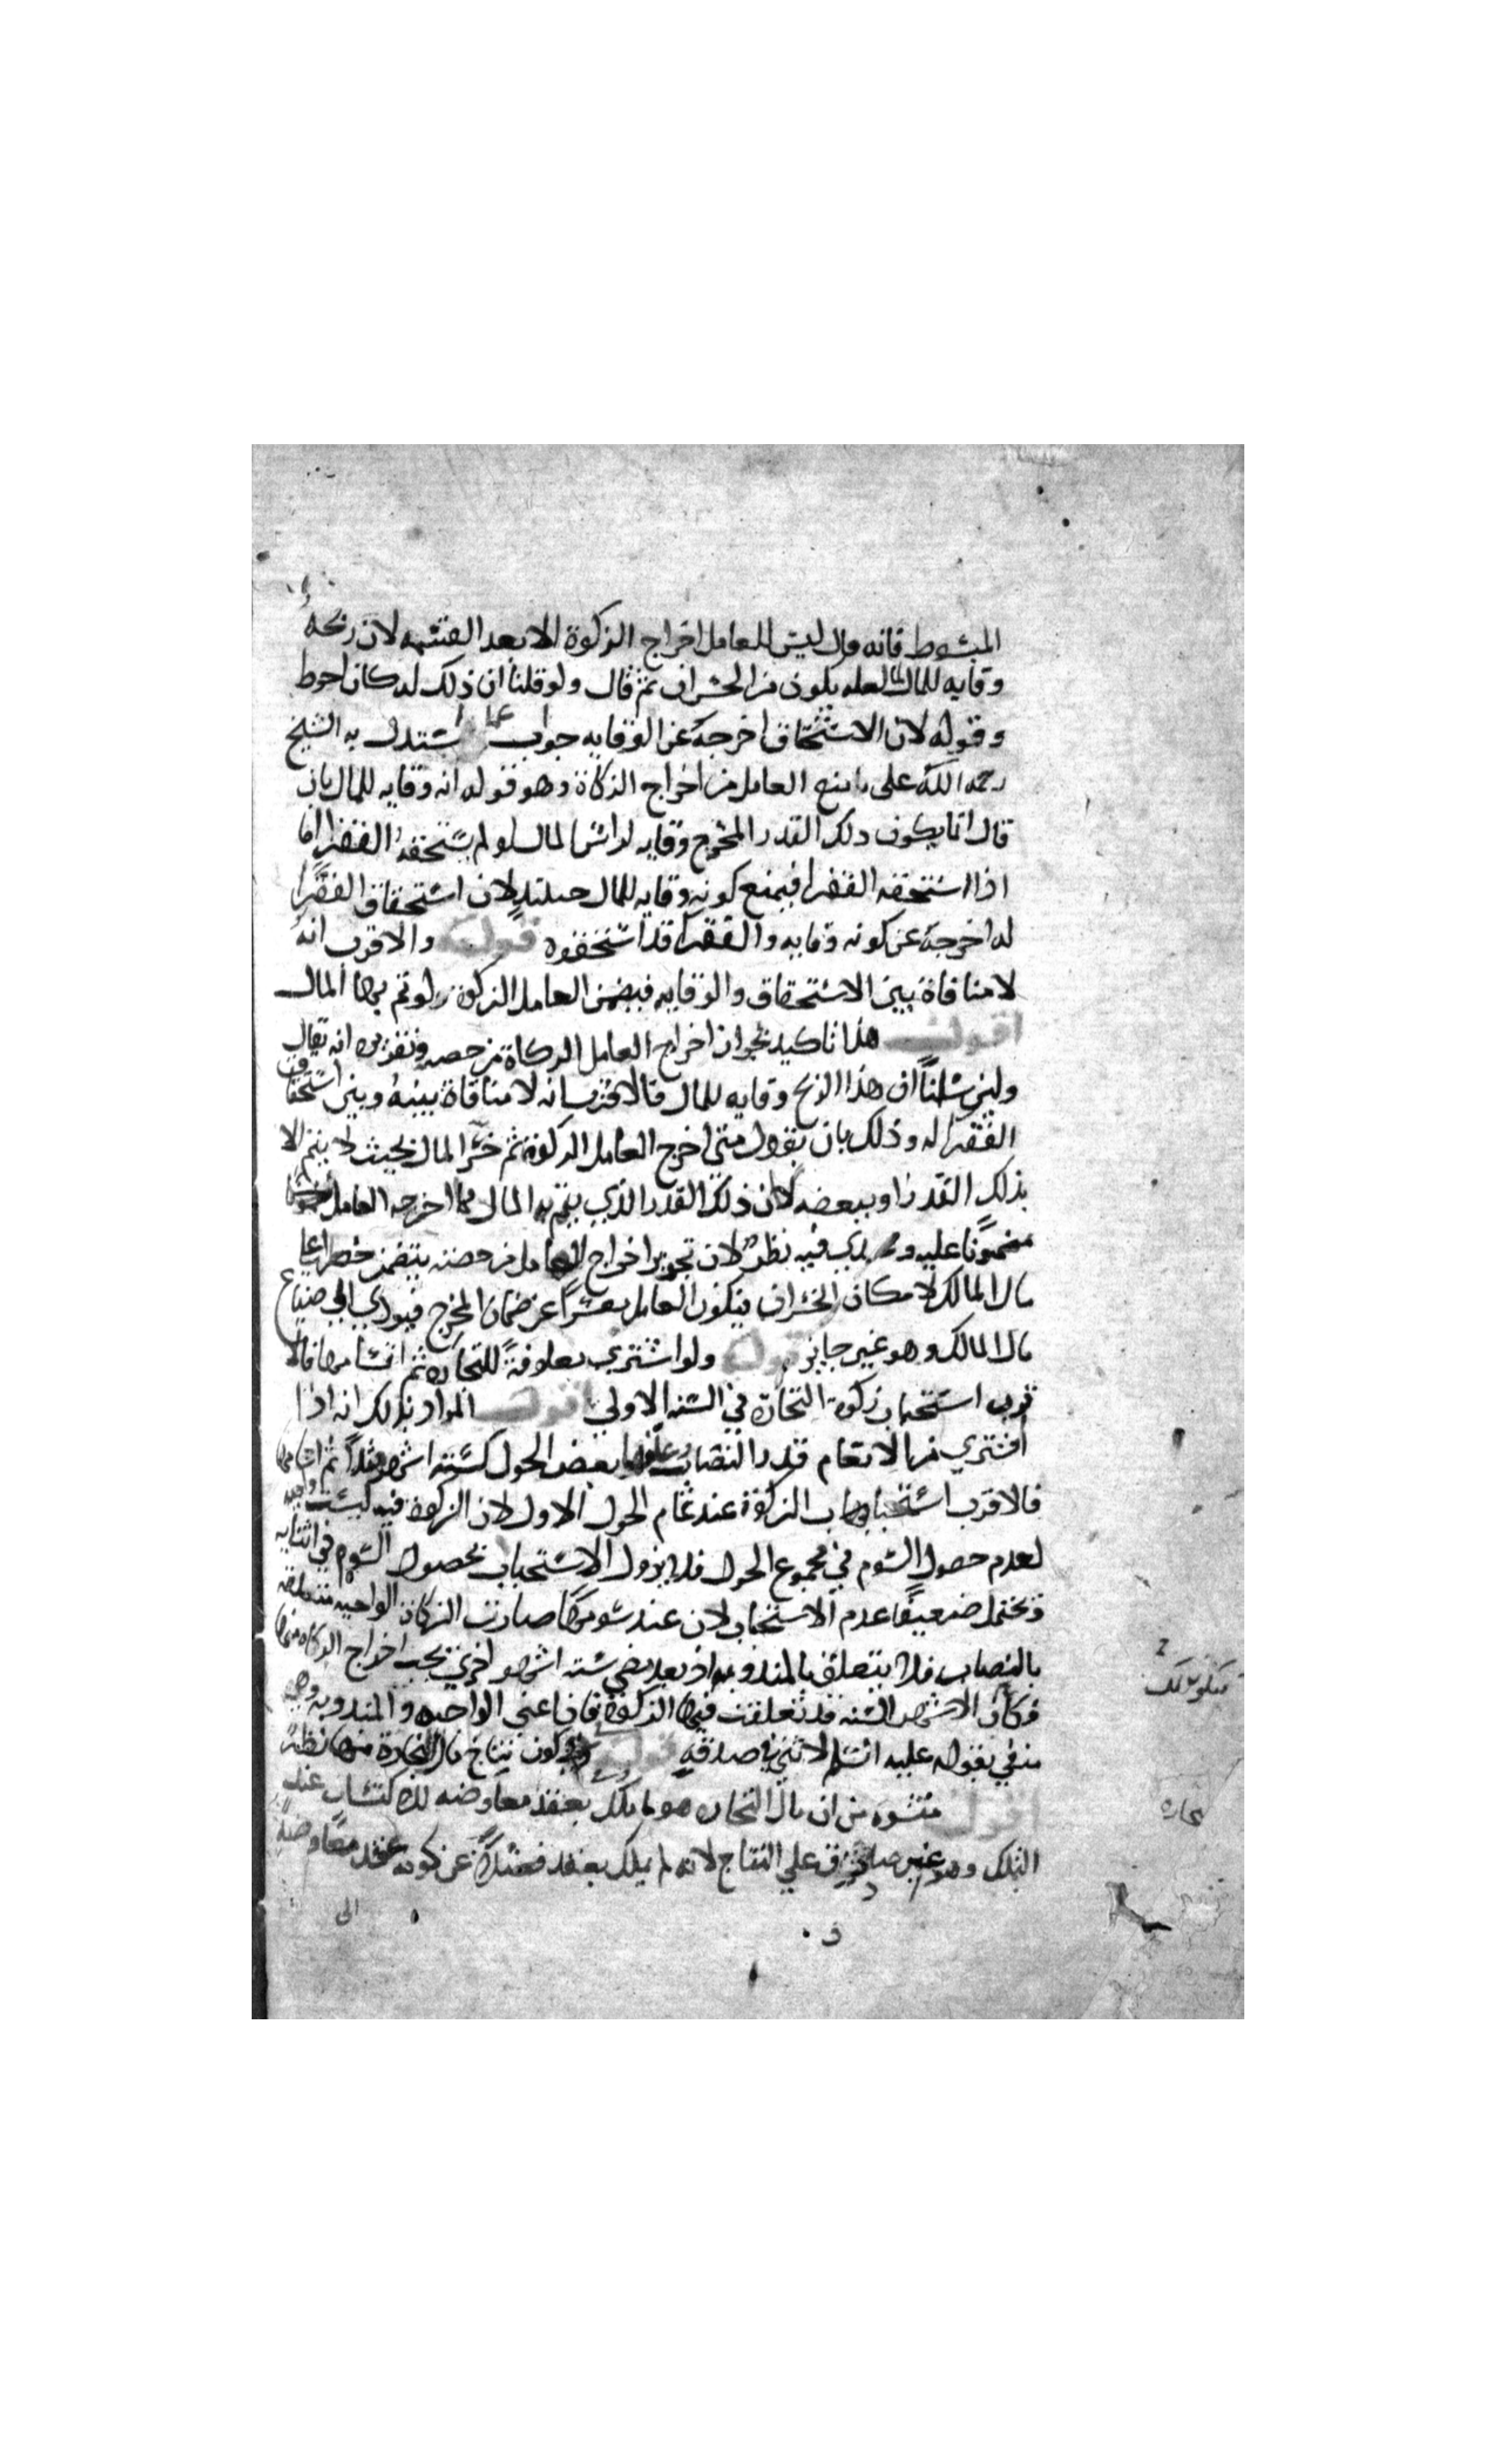 المبسوط فانه قال ليس للعامل اخراج الزكوة الا بعد القسمة لان ربحه
وقايه للمال لعله يكون من الخسران ثم قال ولو قلنا ان ذلك له كان احوط
وقوله لان الاستحقاق اخرجه عن الوقايه جواب عما استدل به الشيخ
رحمه الله على مامنع العامل من اخراج الزكاة وهو قوله انه وقايه للمال بان
قال انما يكون ذلك القدر المخرج وقايه لراس المال لو لم يستحقه الفقرا اما
اذا استحقه الفقرا فيمنع كونه وقايه للمال حينئذ لان استحقاق الفقرا
له اخرجه عن كونه وقايه والفقرا قد استحقوه قوله والاقرب انه
لا منافاة بين الاستحقاق والوقايه فيضمن العامل الزكوة لو تم بها المال
اقول هذا تاكيد لجواز اخراج العامل الزكاة من حصه وتقريره انه يقال
ولئن سلمنا ان هذا الربح وقايه للمال فالاقرب انه لا منافاة بينه وبين استحقاق
الفقرا له وذلك بان يقول متى اخرج العامل الزكوة ثم خسر المال بحيث لا يتم الا
بذلك القدر او ببعضه كان ذلك القدر الذي يتم به المال مما اخرجه العامل
مضمونا عليه و فيه نظر لان تجويز اخراج العامل من حصته يتضمن خطرا على
مال المالك لامكان الخسران فيكون العامل معسرا عن ضمان المخرج فيودي الى ضياع
مال المالك وهو غير جايز قوله ولو اشترى معلوفة للتجاره ثم اسامها فالا
قرب استحباب زكوة التجارة في السنه الاولى اقول المراد بذلك انه اذا
اشترى من الانعام قدر النصاب وعلفها بعض الحول كستة اشهر مثلا ثم اسامها
فالاقرب استحباب الزكوة عند تمام الحول الاول لان الزكوة فيه ليست واجبه
لعدم حصول السوم في مجموع الحول فلا يزول الاستحباب بحصول السوم في اثنايه
ويحتمل ضعيفا عدم الاستحباب لان عند سومها صارت الزكاة الواجبه متعلقه
بالنصاب فلا يتعلق بالمندوبه اذ بعد مضي سته اشهر اخرى يجب اخراج الزكاه منها
فكان الاشهر السته قد تعلقت فيها الزكوة تان اعني الواجبه والمندوبه وهو
منفي بقوله عليه السلم لا ثنى في صدقه قوله وفي كون نتاج مال التجارة منها نظر
اقول منشوه من ان مال التجاره هو ما ملك بعقد معاوضه للاكتساب عند
التملك وهو غير صادق على النتاج لانه لم يملك بعقد فضلا عن كونه عقد معاوضه
الى
تجاره